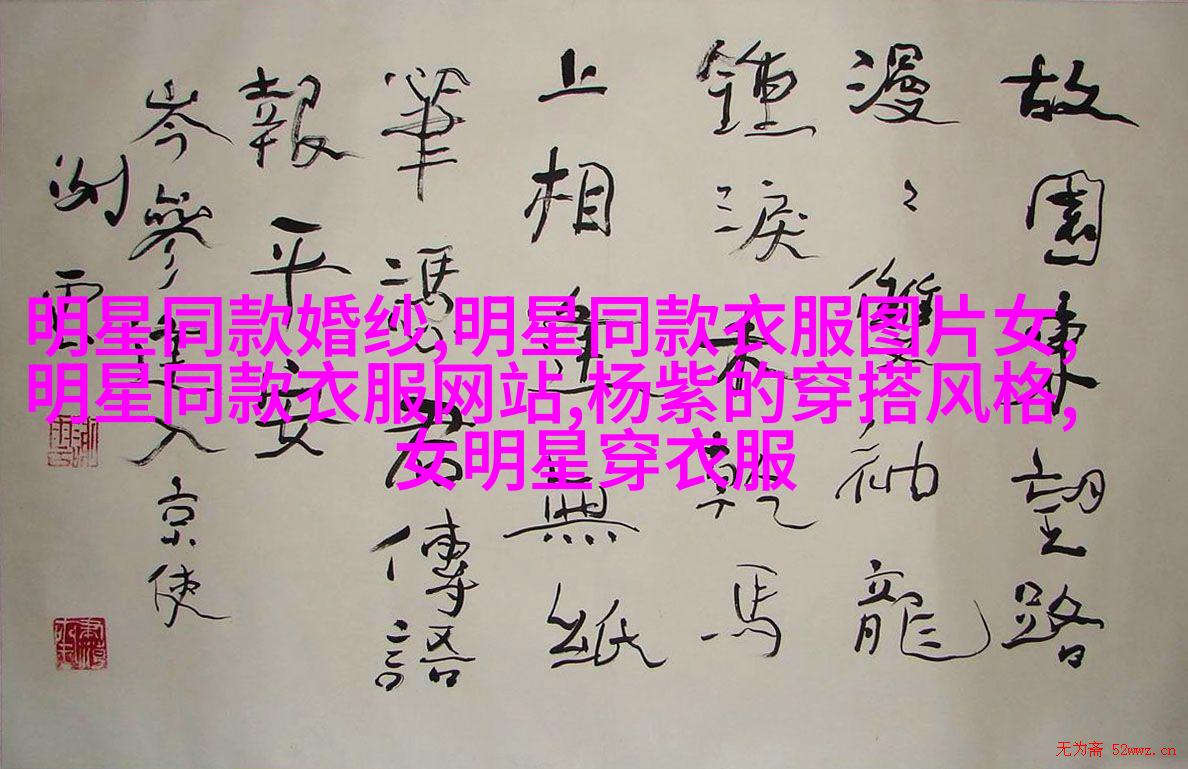 故園東望路
漫〻雙袖龍
鍾淚不乾馬
上相逢無紙
筆憑君傳語
報平安
岑參逢入京使
明星同款婚纱,明星同款衣服图片女,
明星同款衣服网站,杨紫的穿搭风格,
女明星穿衣服
无为斋 52wwz.cn